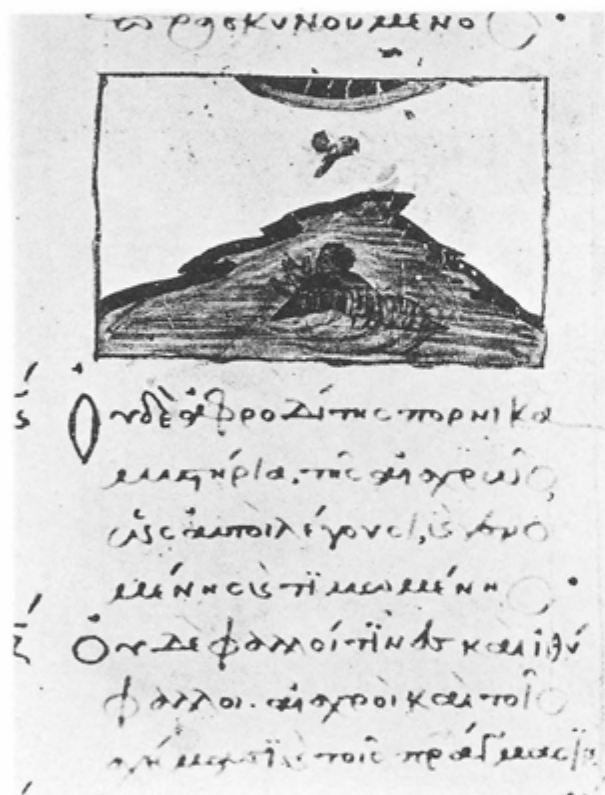 προσκυνουμενο
Οὐδὲ ἀφροδίτης πορνικα
μυστήρια, τῆς αἰσχρῶς
ὡς αὐτοι λέγουσι,
μένης τϊμωμένη
Οὐδε φαλλοί τϊνὲσ και ἰθύ
φαλλοι. αἰσχροι και τοῖ
τοῖς πράγμασϊ